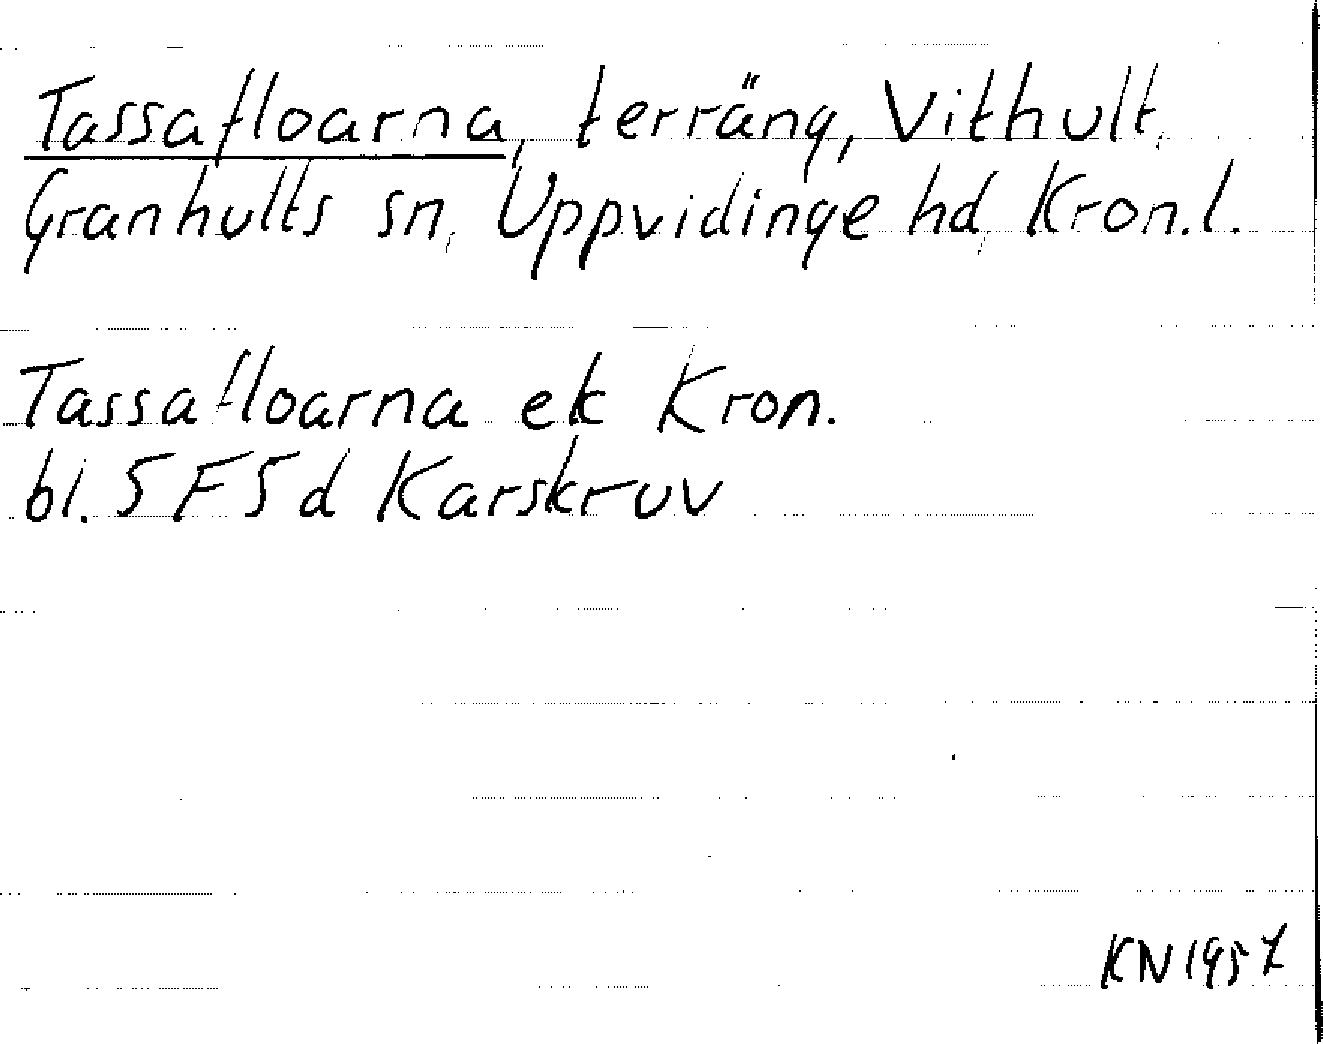 Tassafloarna, terräng, Vithult,
Granhults sn, Uppvidinge hd, Kron.l.
Tassafloarna ek Kron.
bl. 5F5d Karskruv
KN 1957